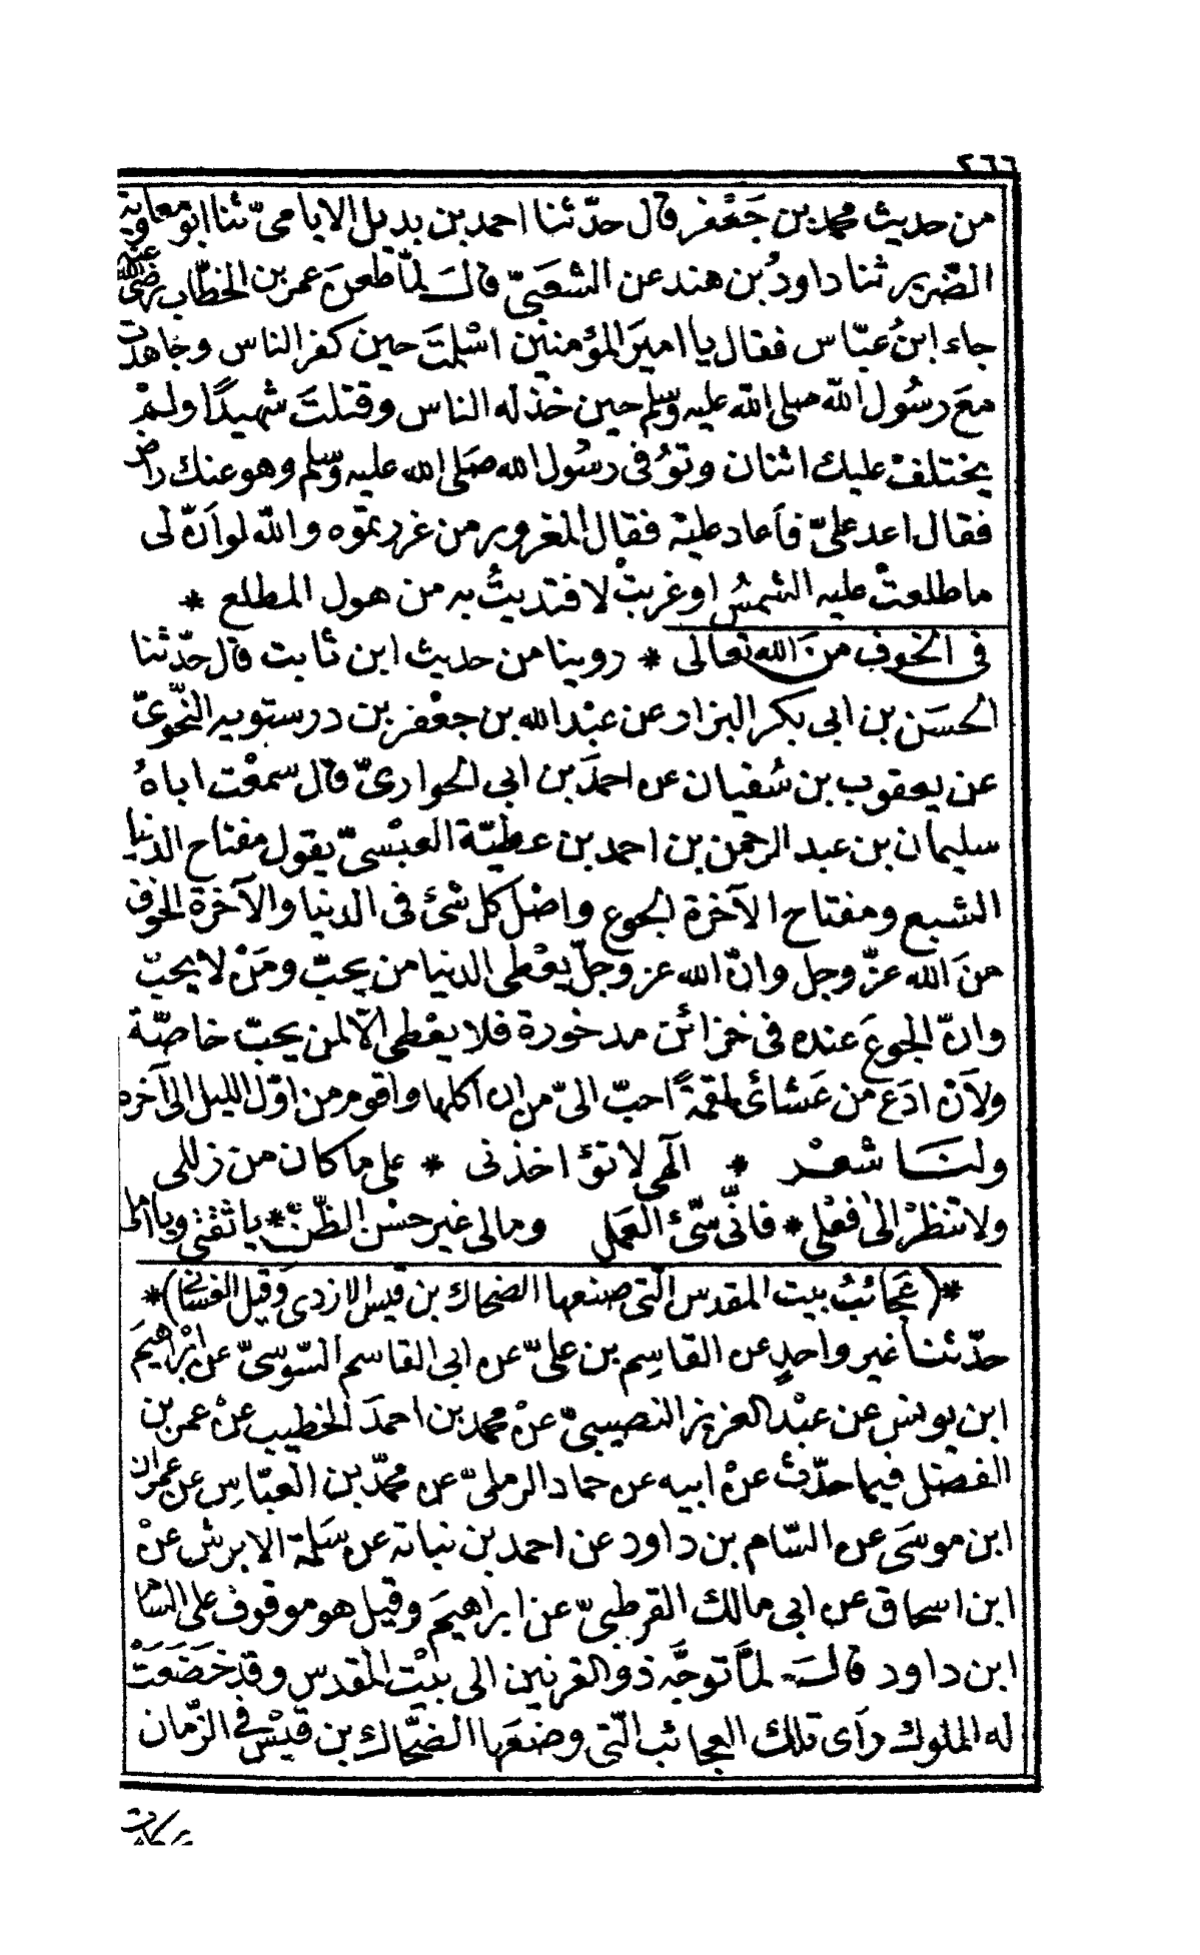 ٢٦٦
من حديث محمد بن جَعْفر قال حدّثنا احمد بن بديل الايامىّ ثنا ابو معاوية
الضّرير ثنا داودُ بن هند عن الشعَبىّ قالَ لمّا طعنَ عمر بن الخطّاب رضى الله عنه
جاء ابنُ عبّاس فقال يا اميرَ المؤمنين اسْلمتَ حين كفر الناس وجاهدت
معَ رسُول الله صلى الله عليه وسلم حين خذله الناس وقتلتَ شهيدًا ولمْ
يختلفْ عليك اثنان وتوُفى رسُول الله صَلى الله عليه وسّلم وهو عنك راض
فقال اعد علىّ فأعاد عليْه فقال المغرور من غررتموه والله لو اَنّ لى
ما طلعتْ عليه الشمسُ اوغربتْ لافتديتُ به من هول المطلع *
فى الخوف منَ الله تعالى * روينا من حديث ابن ثابت قال حدّثنا
الحسَن بن ابى بكر البزار عن عبْد الله بن جعْفر بن درستويه النّحْوىّ
عن يعقوب بن سُفيان عن احمدَ بن ابى الحوارىّ قال سمعْت اباهُ
سليمان بن عبد الرحمن بن احمد بن عطيّة العبْسىّ يقول مفتاح الدنيا
الشبع ومفتاح الآخرة الجوع واصْل كل شئ فى الدنيا والآخرة الخوف
منَ الله عزّ وجل وانّ الله عز وجلّ يعْطى الدنيا من يحبّ ومَنْ لا يحبّ
وانّ الجوعَ عنده فى خزائن مدخورة فلا يعْطى الّا لمن يحبّ خاصّة
ولَاَنْ ادَعَ من عَشائى لقمةً احبّ الىّ من ان آكلها واقوم من اوّل الليل الى آخره
ولنَا شعْر * الٰهى لا تؤاخذنى * على ما كان من زللى
ولا تنظرْ الى فعْلى * فانّى سّئ العَمل ومالى غير حسْن الظّنّ * ياثقتى ويا املى
*(عَجَائبُ بيت المقدس الّتى صنعها الضحاك بن قيس الازدى وقيل الغسانى)*
حدّثنا غير واحدٍ عن القاسِم بن علىّ عن ابى القاسم السّوسىّ عن ابْراهيمَ
ابن يونس عن عبْد العزيز النصيبىّ عنْ محمد بن احمدَ الخطيب عنْ عمر بن
الفضل فيما حدّث عنْ ابيه عن حماد الرملىّ عن محمّد بن العبّاسِ عن عمران
ابن موسَى عن السّام بن داود عن احمد بن نباتة عن سَلمة الابرش عنْ
ابن اسحاق عن ابى مالك القرطبىّ عن ابراهيمَ وقيل هو موقوف على السّام
ابن داود قالَ لمّا توجّه ذو القرنين الى بيْت المقدس وقد خضَعَتْ
له الملوك رأى تلك العجائب الّتى وضعَها الضحّاك بن قيْس فى الزّمان